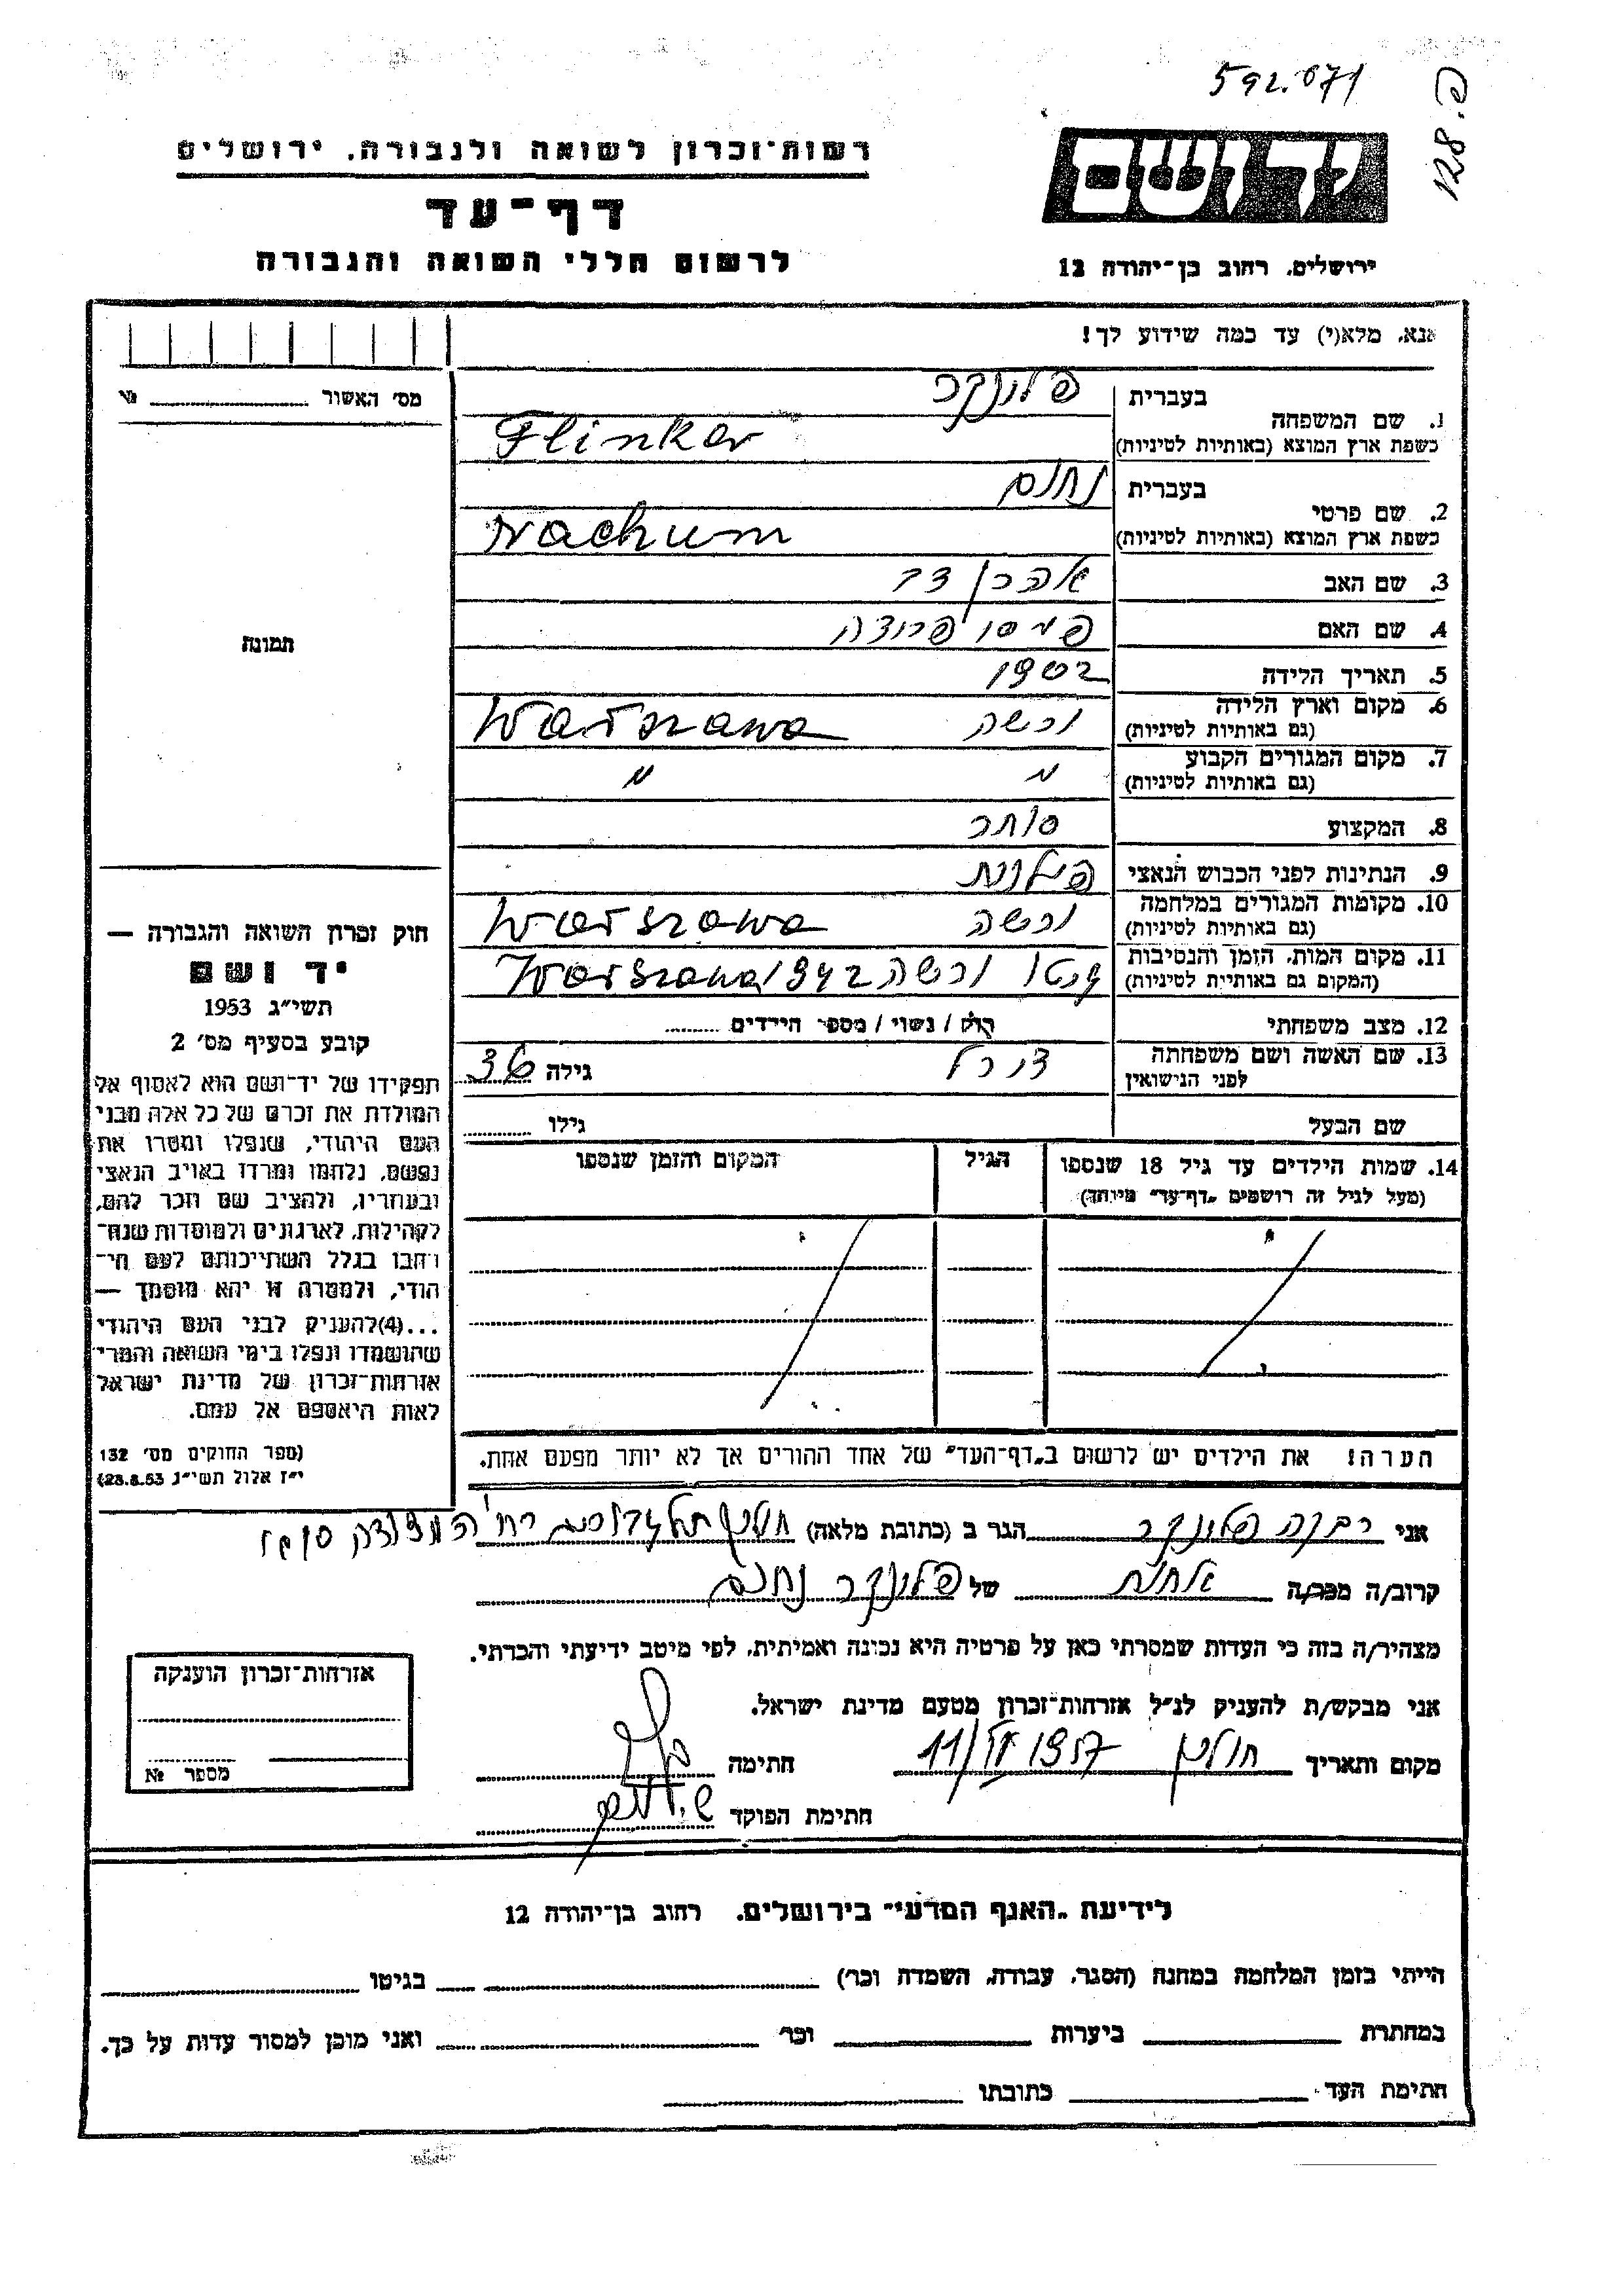 592.071
128.פ
רשות־זכרון לשואה ולגבורה, ירושלים
דף־עד
לרשום חללי השואה והגבורה
יד ושם
ירושלים, רחוב בן־יהודה 12
אנא, מלא(י) עד כמה שידוע לך!
מס׳ האשור №
1. שם המשפחה
בעברית פלינקר
בשפת ארץ המוצא (באותיות לטיניות) Flinker
2. שם פרטי
בעברית נחום
בשפת ארץ המוצא (באותיות לטיניות) Nachum
3. שם האב אהרן דב
4. שם האם
5. תאריך הלידה 1902
6. מקום וארץ הלידה ורשה Warszawa
(גם באותיות לטיניות)
7. מקום המגורים הקבוע " "
(גם באותיות לטיניות)
8. המקצוע סוחר
9. הנתינות לפני הכבוש הנאצי פולנית
10. מקומות המגורים במלחמה ורשה Warszawa
(גם באותיות לטיניות)
11. מקום המות, הזמן והנסיבות גטו ורשה 1942 Warszawa
(המקום גם באותיות לטיניות)
12. מצב משפחתי רווק / נשוי / מספר הילדים
13. שם האשה ושם משפחתה גילה 36
לפני הנישואין
שם הבעל גילו
14. שמות הילדים עד גיל 18 שנספו הגיל המקום והזמן שנספו
(מעל לגיל זה רושמים „דף־עד״ מיוחד)
הערה! את הילדים יש לרשום ב„דף־העד״ של אחד ההורים אך לא יותר מפעם אחת.
תמונה
חוק זכרון השואה והגבורה —
יד ושם
תשי״ג 1953
קובע בסעיף מס׳ 2
תפקידו של יד־ושם הוא לאסוף אל
המולדת את זכרם של כל אלה מבני
העם היהודי, שנפלו ומסרו את
נפשם, נלחמו ומרדו באויב הנאצי
ובעוזריו, ולהציב שם וזכר להם,
לקהילות, לארגונים ולמוסדות שנח־
רבו בגלל השתייכותם לעם הי־
הודי, ולמטרה זו יהא מוסמך —
...(4)להעניק לבני העם היהודי
שהושמדו ונפלו בימי השואה והמרי
אזרחות־זכרון של מדינת ישראל
לאות היאספם אל עמם.
(ספר החוקים מס׳ 132
י״ז אלול תשי״ג 28.8.53)
אני רבקה פלינקר הגר ב (כתובת מלאה) חולון
קרוב/ה מכר/ה אחות של פלינקר נחום
מצהיר/ה בזה כי העדות שמסרתי כאן על פרטיה היא נכונה ואמיתית, לפי מיטב ידיעתי והכרתי.
אני מבקש/ת להעניק לנ״ל אזרחות־זכרון מטעם מדינת ישראל.
מקום ותאריך חולון 1957 חתימה
חתימת הפוקד
אזרחות־זכרון הוענקה
מספר №
לידיעת „האגף המדעי״ בירושלים, רחוב בן־יהודה 12
הייתי בזמן המלחמה במחנה (הסגר, עבודה, השמדה וכו׳) בגיטו
במחתרת ביערות וכו׳ ואני מוכן למסור עדות על כך.
חתימת העד כתובתו